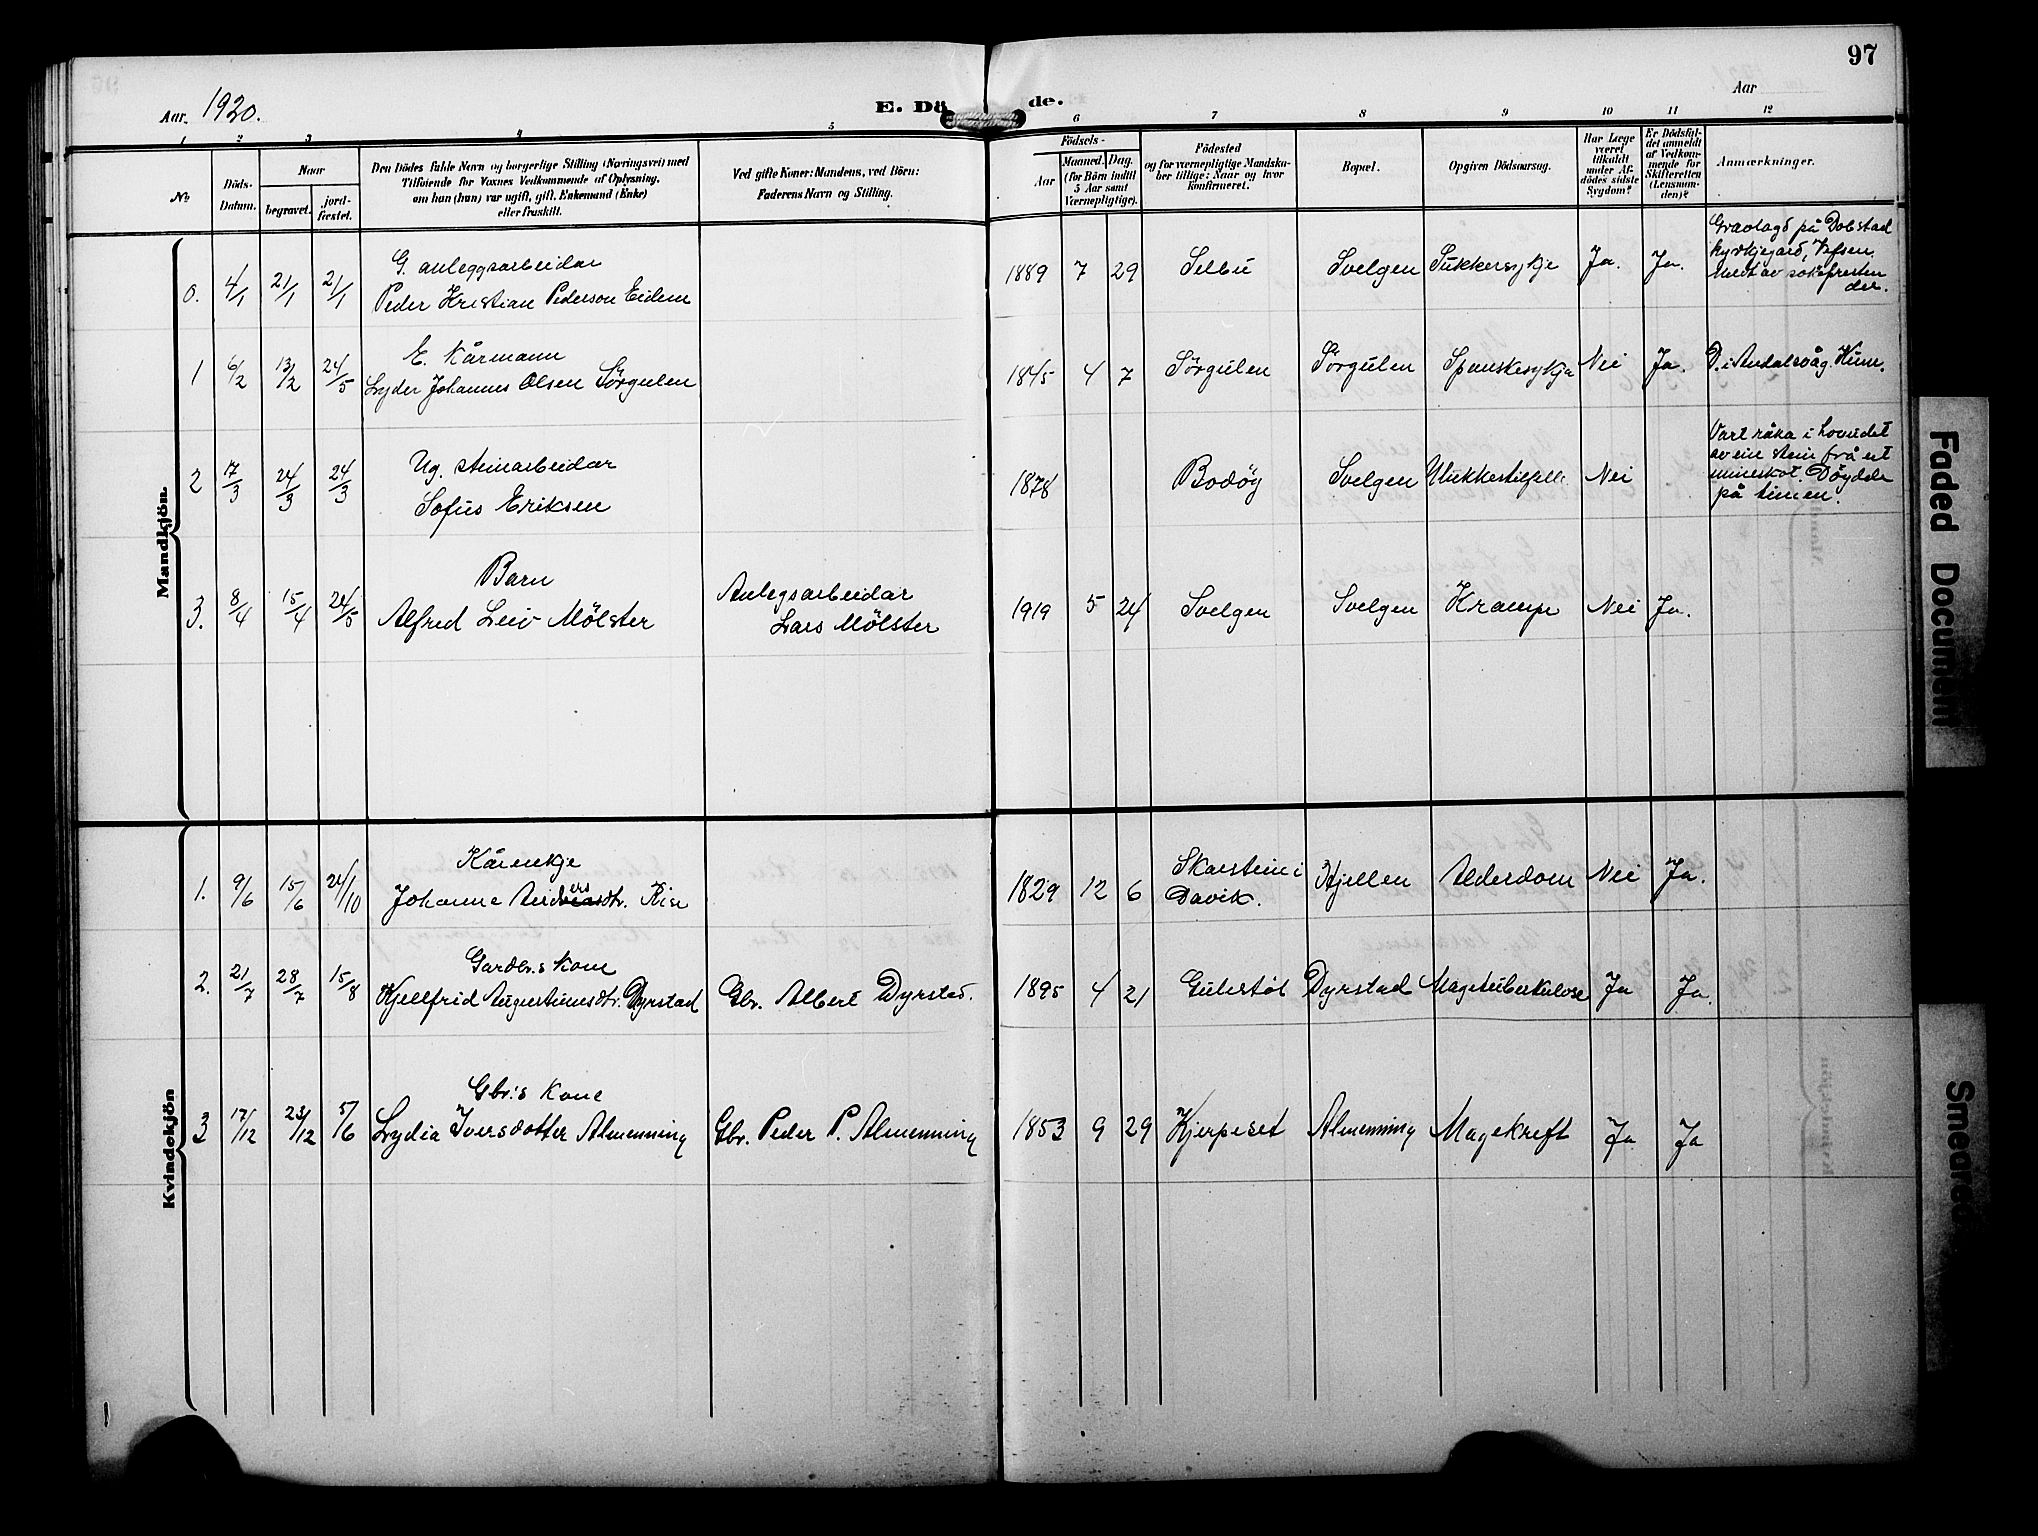 97
Aar 1920.
E. Dö de.
Aar
1 2 3 4 5 6 7 8 9 10 11 12
No
Döds-Datum.
Naar
begravet.
jord-fæstet.
Den Dödes fulde Navn og borgerlige Stilling (Næringsvei) med
Tilföiende for Voxnes Vedkommende af Oplysning,
om han (hun) var ugift, gift, Enkemand (Enke)
eller fraskilt.
Ved gifte Koner: Mandens, ved Börn:
Faderens Navn og Stilling.
Födsels-
Aar
Maaned. Dag.
(for Börn indtil
5 Aar samt
Værnepligtige).
Födested
og for værnepligtige Mandska-
ber tillige: Naar og hvor
konfirmeret.
Bopæl.
Opgiven Dödsaarsag.
Har Læge
været
tilkaldt
under Af-
dödes sidste
Sygdom?
Er Dödsfal-
det anmeldt
af Vedkom-
mende for
Skifteretten
(Lensman-
den)?
Anmærkninger.
Mandkjön.
0. 4/1 21/1 21/1 G. anleggsarbeidar
Peder Kristian Pederson Eidem
1889 7 29 Selbu Svelgen Sukkersykje Ja. Ja.
Gravlagd på Dolstad
kyrkjegard, Vefsen.
Meldt av soknepresten
der.
1 6/2 13/2 24/5 E. Kårmann
Lyder Johannes Olsen Sörgulen
1845 4 7 Sörgulen Sörgulen Spanskesykja Nei Ja. D. i Andalsvåg.
2 17/3 24/3 24/3 Ug. steinarbeidar
Sofus Eriksen
1878 Bodöy Svelgen Ulukkestilfelle Nei
Vart råka i hovudet
av ein stein frå eit
mineskot. Döydde
på timen.
3. 8/4 15/4 24/5 Barn
Alfred Leiv Mölster
Anlegsarbeidar
Lars Mölster
1919 5 24 Svelgen Svelgen Krampe Nei Ja.
Kvindekjön
1. 9/6 15/6 24/10 Kårenkje
Johanne Andersdtr. Rise
1829 12 6 Skarstein i
Davik.
Hjellen Alderdom Nei Ja.
2. 21/7 28/7 15/8 Gardbr.s kone
Kjellfrid Augustinusdtr. Dyrstad
Gbr. Albert Dyrstad.
1895 4 21 Gulestöl Dyrstad Magetuberkulose Ja Ja.
3 17/12 23/12 5/6 Gbr.'s kone
Lydia Iversdotter Almenning
Gbr. Peder P. Almenning
1853 9 29 Hjerpeset Almenning Magekreft Ja Ja
Faded Document
Smeared